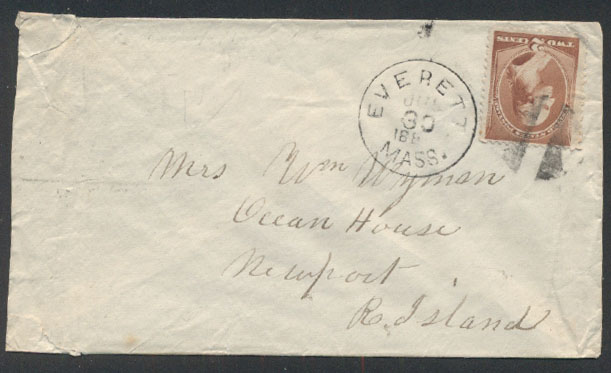 EVERETT
30
188
MASS.
TWO 2 CENTS
Mrs Wm Wyman
Ocean House
Newport
R. Island